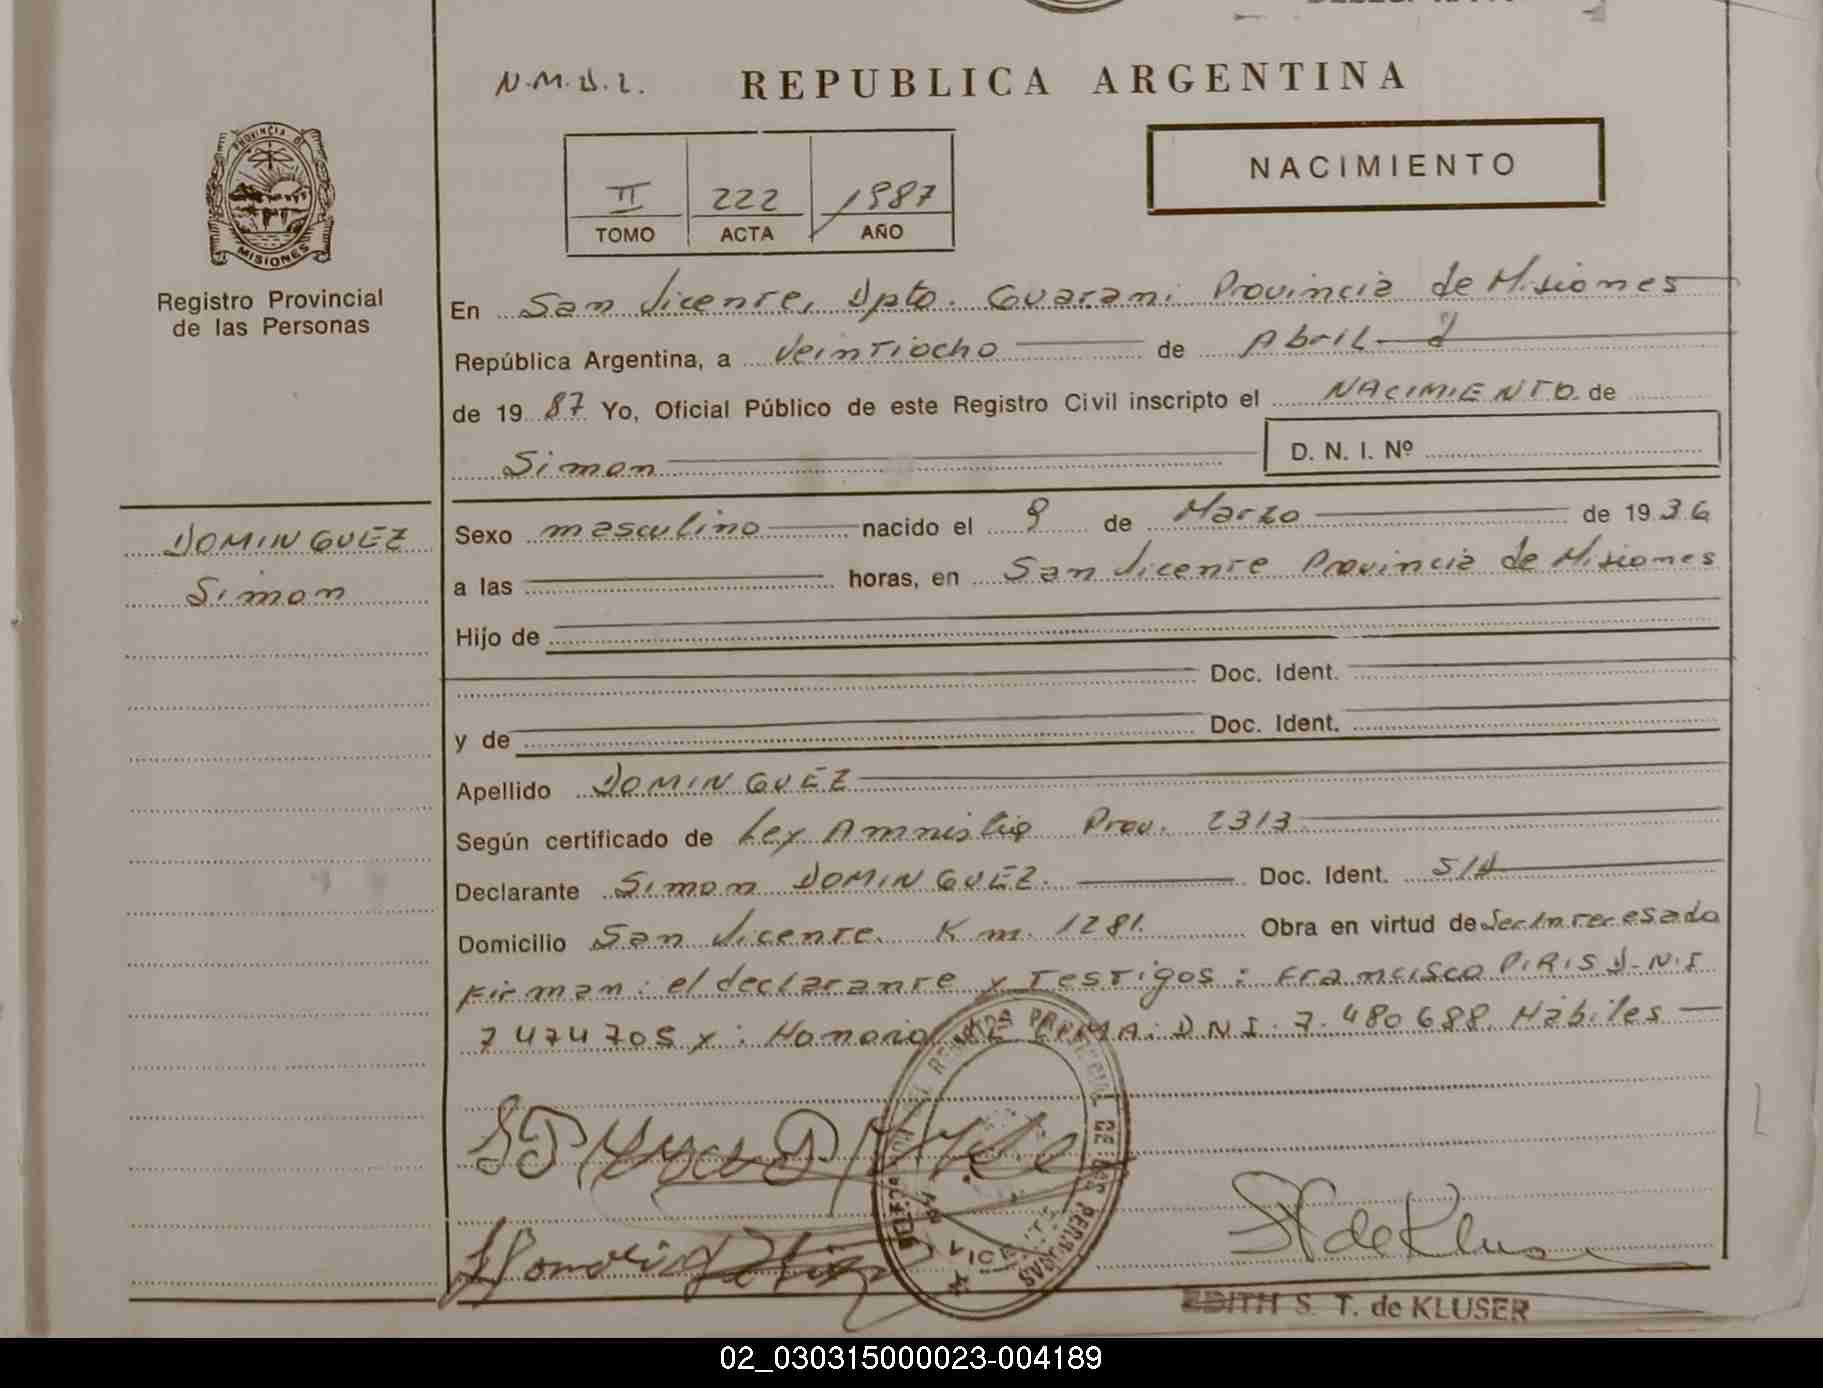 N.M.D.L. REPUBLICA ARGENTINA
PROVINCIA DE
MISIONES
Registro Provincial
de las Personas
II 222 1987
TOMO ACTA AÑO
NACIMIENTO
En San Vicente, Dpto. Guarani Provincia de Misiones
República Argentina, a Veintiocho de Abril
de 19 87 Yo, Oficial Público de este Registro Civil inscripto el NACIMIENTO de
Simon D. N. I. Nº
DOMINGUEZ
Simon
Sexo masculino nacido el 9 de Marzo de 19 36
a las horas, en San Vicente Provincia de Misiones
Hijo de
Doc. Ident.
y de Doc. Ident.
Apellido DOMINGUEZ
Según certificado de Ley Amnistia Prov. 2313
Declarante Simon DOMINGUEZ. Doc. Ident. S/D
Domicilio San Vicente Km. 1281. Obra en virtud de Ser Interesado
Firman: el declarante y Testigos: Francisco PIRIS D.N.I
7474705 y: Honorio LERMA: D.N.I. 7.480688. Hábiles
EDITH S. T. de KLUSER
02_030315000023-004189